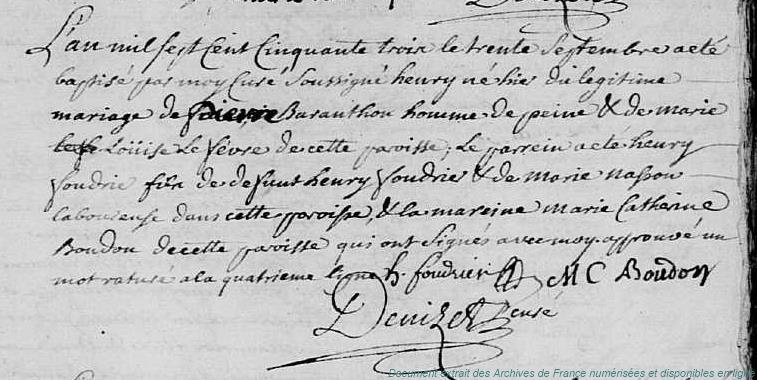 L'an mil sept cent cinquante trois le trente septembre a eté
baptisé par moy curé soussigné henry né hier du legitime
mariage de pierre Baranthon homme de peine & de marie
Loüise Le févre de cette paroisse; le parrein a eté henry
foudrie fils de defunt henry foudrier & de marie nasson
laboureuse dans cette paroisse, & la mareine marie Catherine
Boudon de cette paroisse qui ont signés avec moy. approuvé un
mot raturé a la quatrieme ligne h. foudrier M C Boudon
Denizet curé
Document extrait des Archives de France numérisées et disponibles en ligne